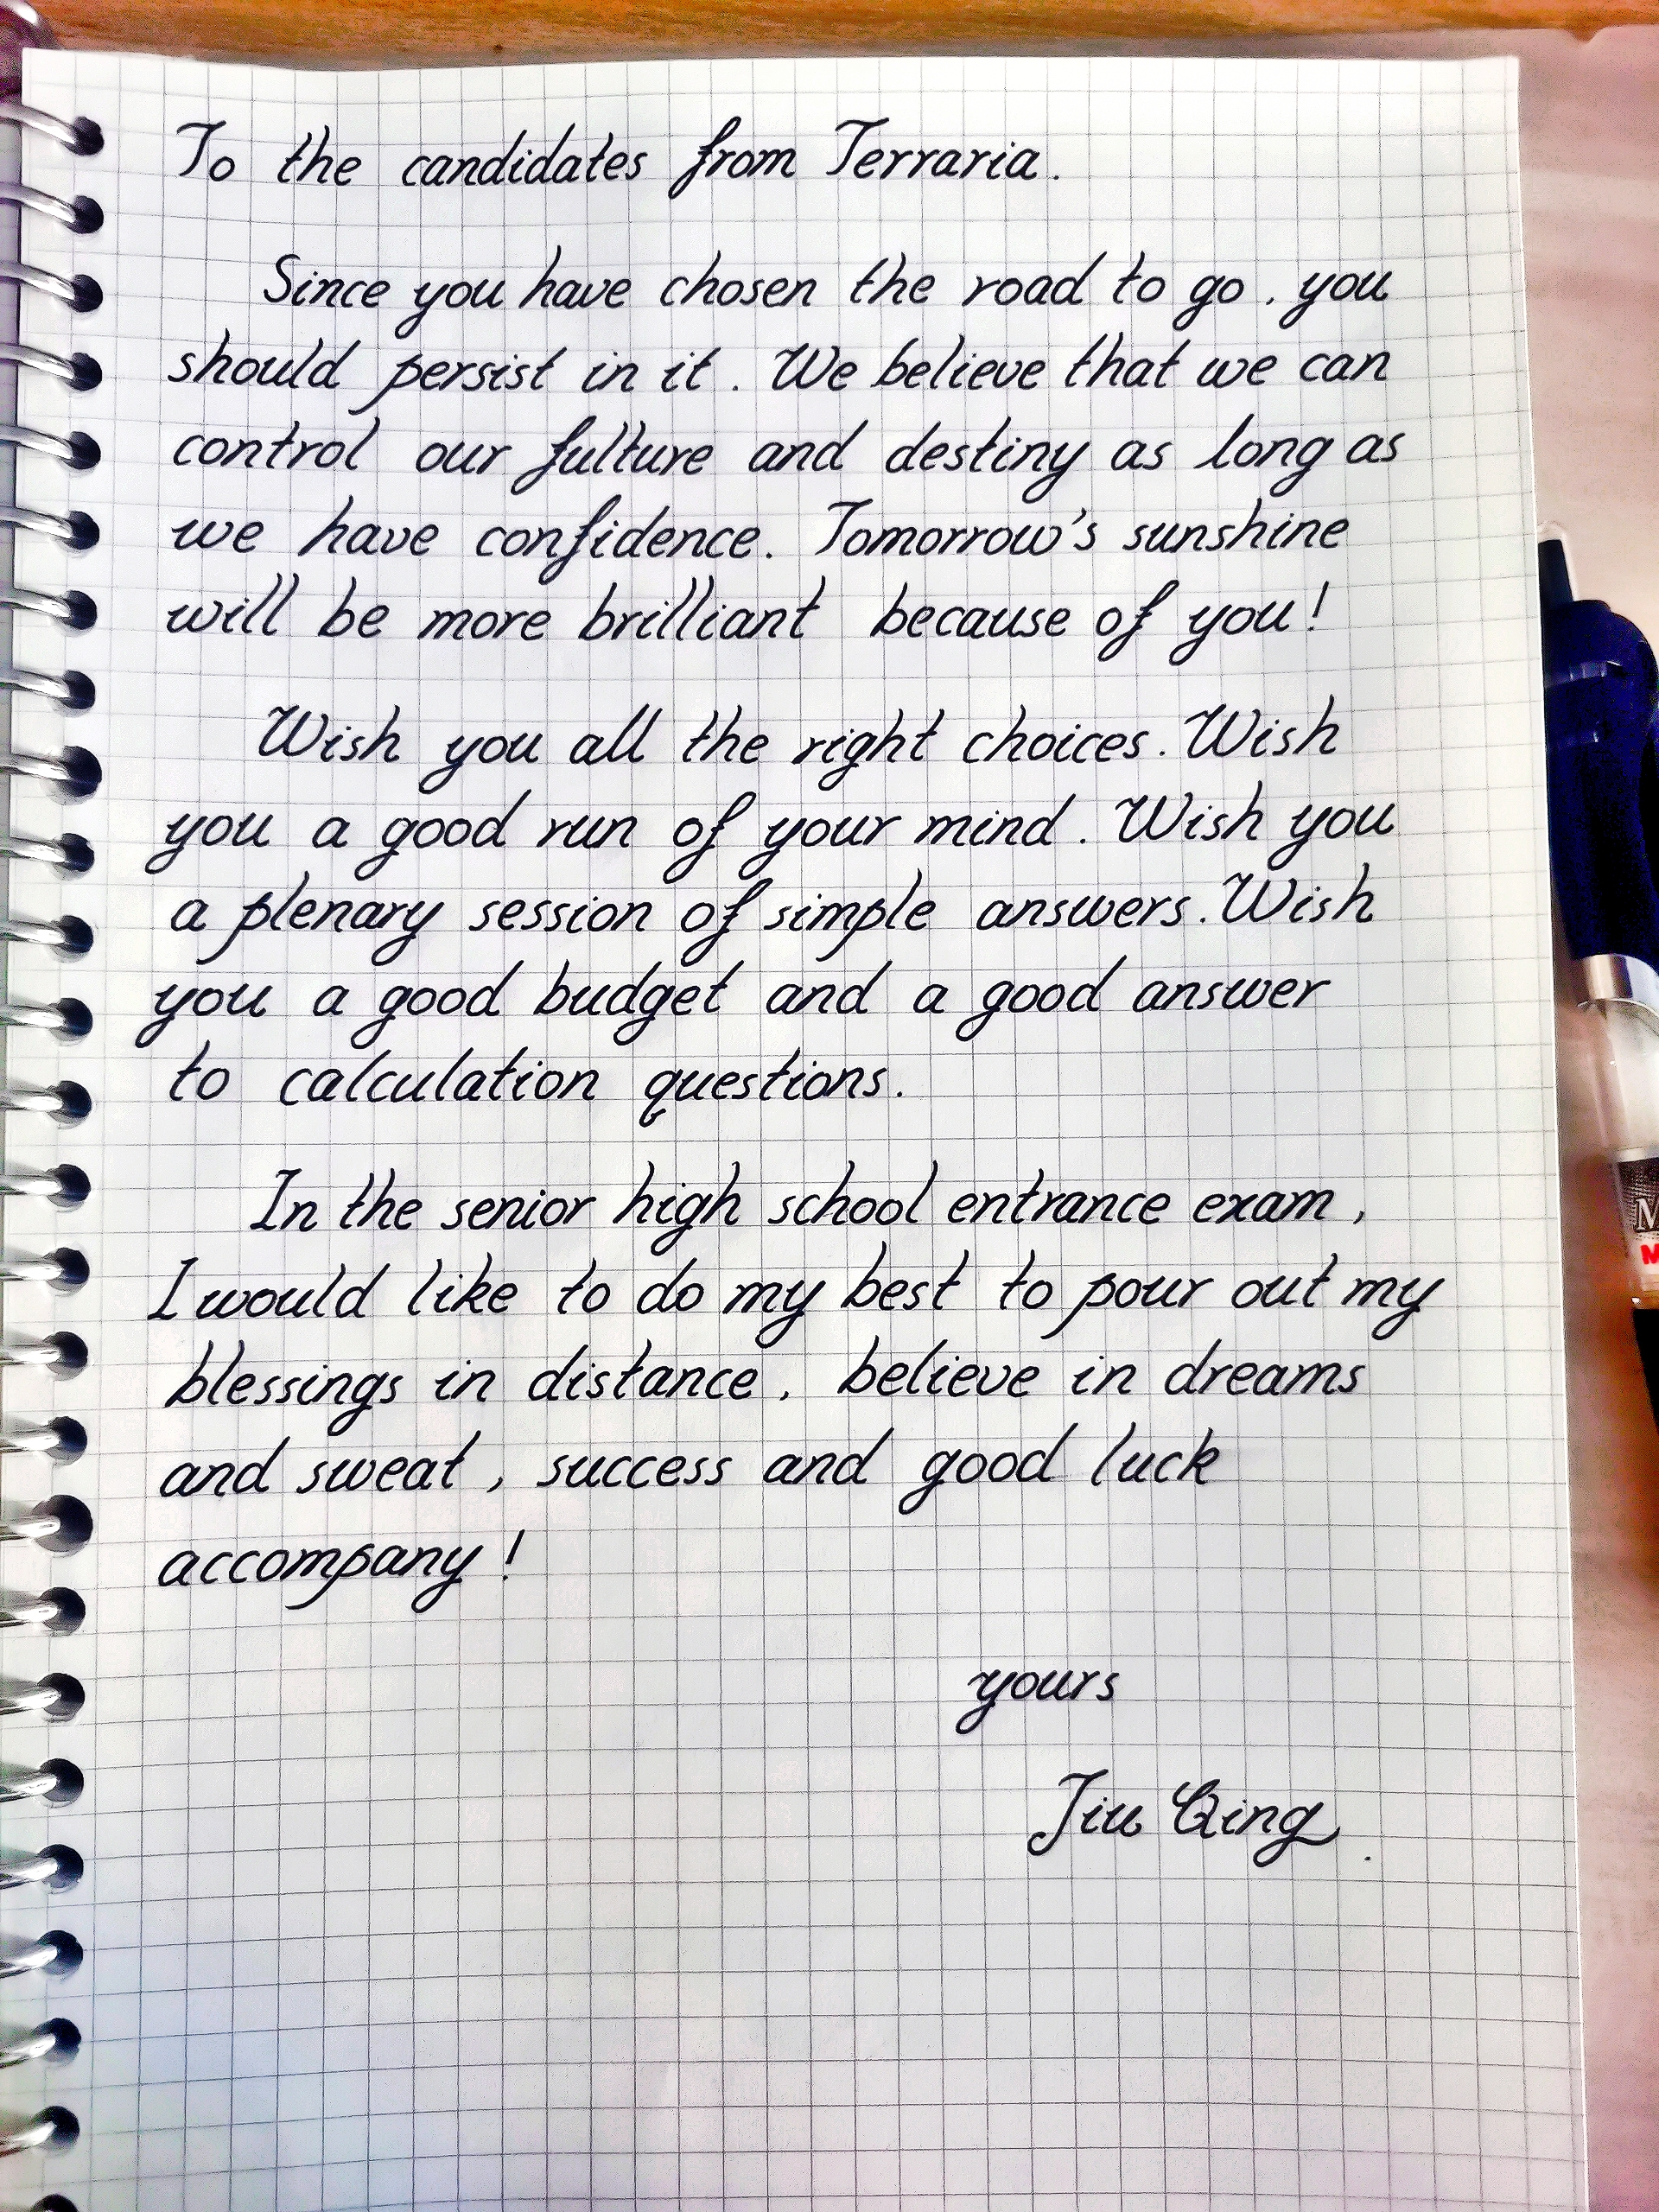 To the candidates from Terraria.
Since you have chosen the road to go, you
should persist in it. We believe that we can
control our fulture and destiny as long as
we have confidence. Tomorrow's sunshine
will be more brilliant because of you!
Wish you all the right choices. Wish
you a good run of your mind. Wish you
a plenary session of simple answers. Wish
you a good budget and a good answer
to calculation questions.
In the senior high school entrance exam,
I would like to do my best to pour out my
blessings in distance, believe in dreams
and sweat, success and good luck
accompany!
yours
Jiu Qing.